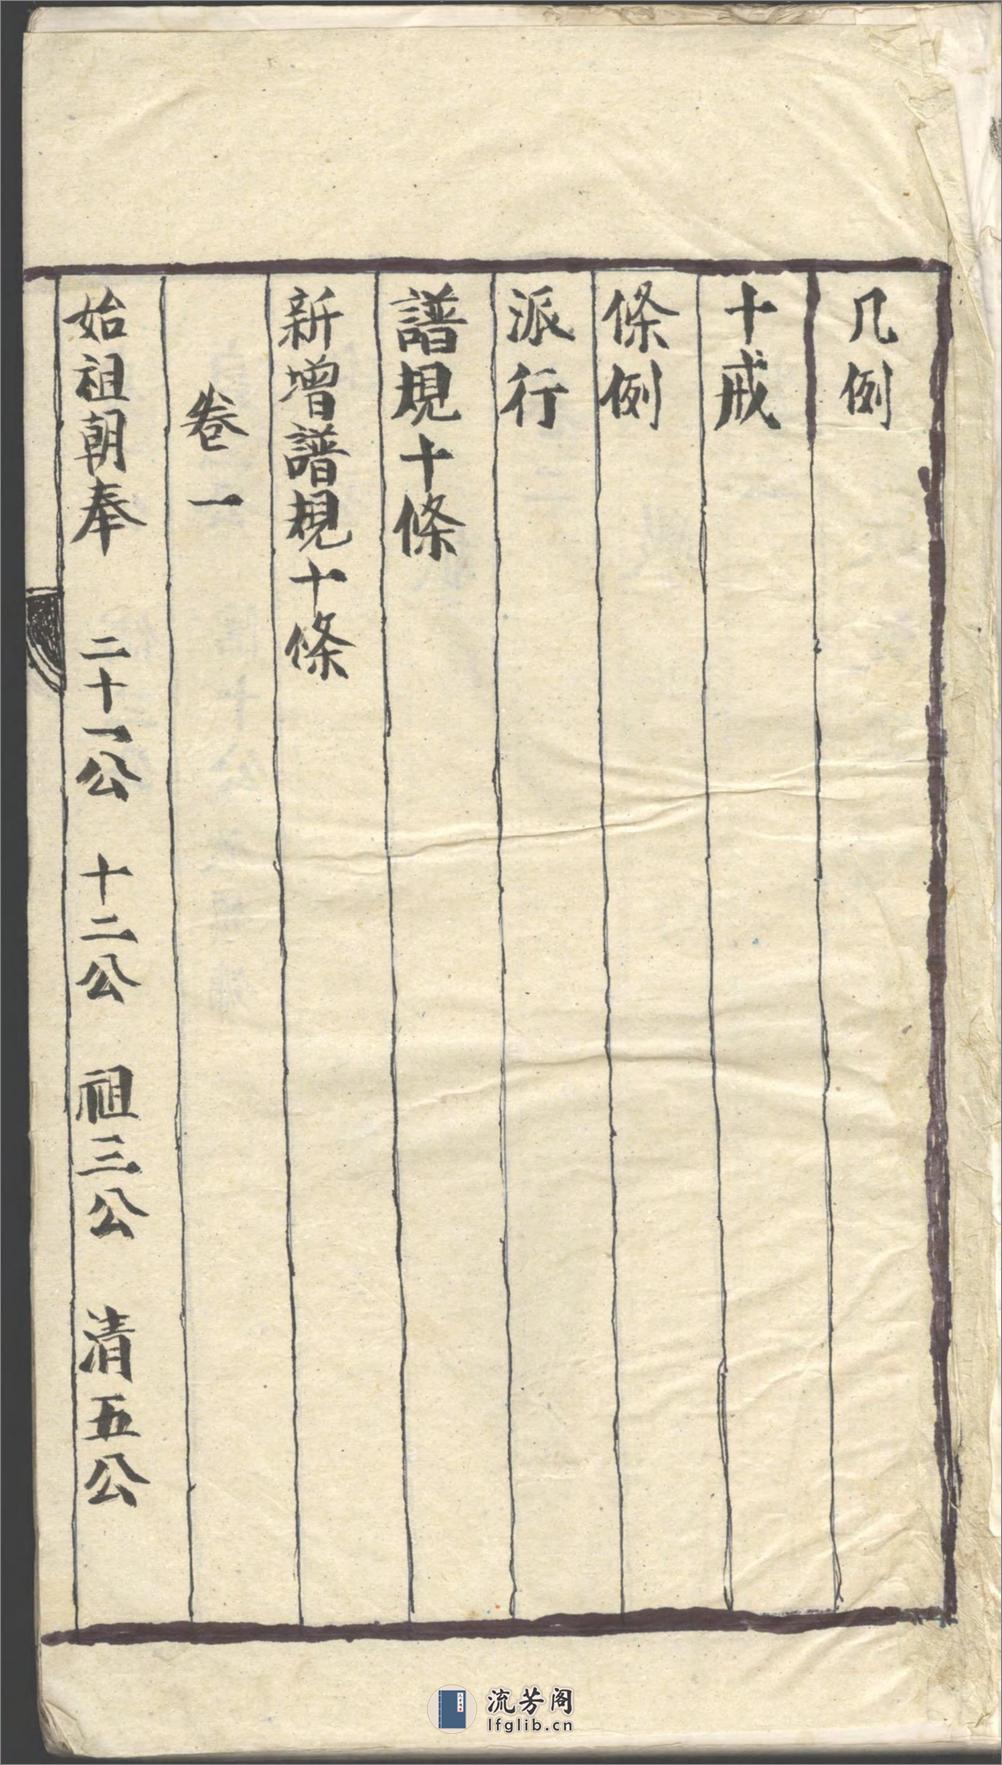 几例
十戒
條例
派行
譜規十條
新增譜規十條
卷一
始祖朝奉 二十一公 十二公 祖三公 清五公
流芳阁
lfglib.cn